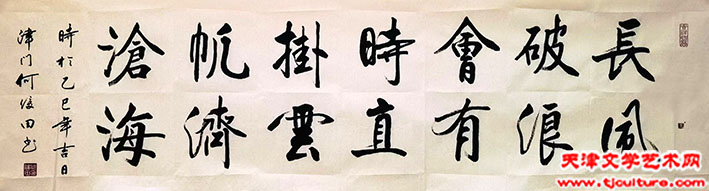 長風
破浪
會有
時直
掛雲
帆濟
滄海
時於乙巳年吉日
津门何俊田书
天津文学艺术网
www.tjculture.com